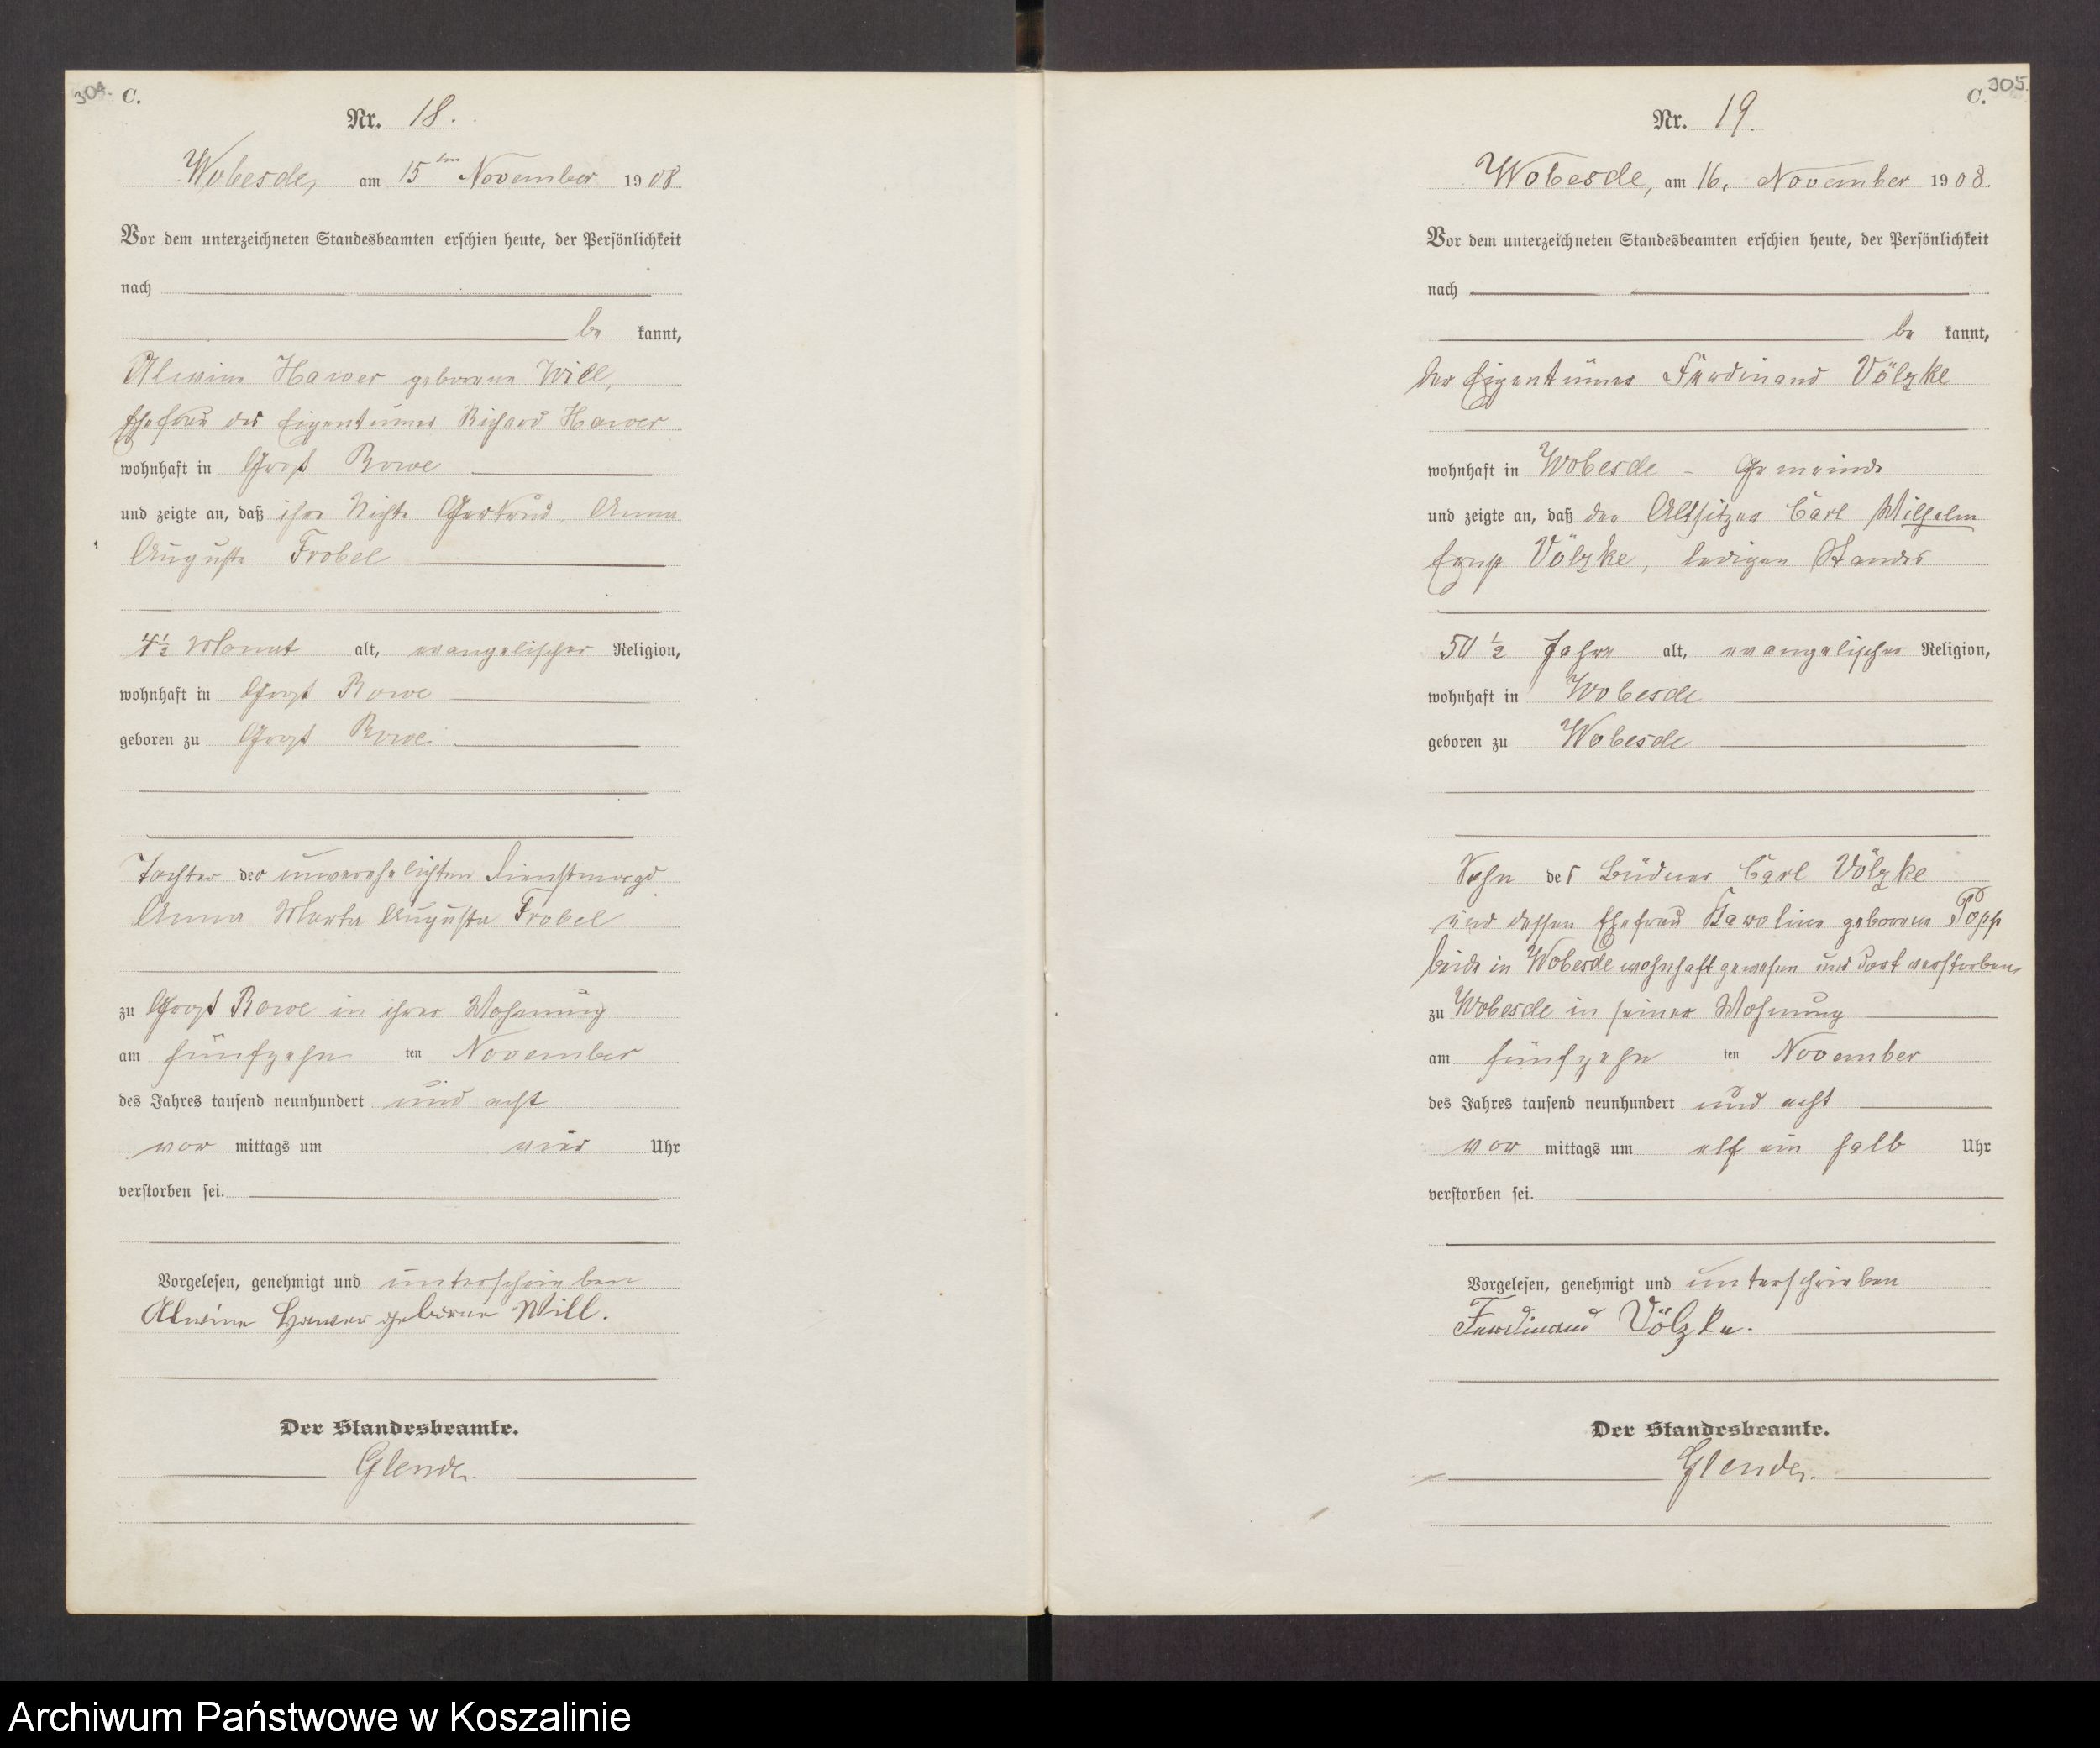 304.
C.
Nr. 18.
Wobesde, am 15ten November 1908.
Vor dem unterzeichneten Standesbeamten erschien heute, der Persönlichkeit
nach
be kannt,
Alwine Hawer geborene Will,
Ehefrau des Eigentümer Richard Hawer
wohnhaft in Groß Rowe
und zeigte an, daß ihre Nichte Gertrud Anna
Auguste Frobel
4½ Monat alt, evangelischer Religion,
wohnhaft in Groß Rowe
geboren zu Groß Rowe
Tochter der unverehelichten Dienstmagd
Anna Marta Auguste Frobel
zu Groß Rowe in ihrer Wohnung
am fünfzehn ten November
des Jahres tausend neunhundert und acht
vor mittags um vier Uhr
verstorben sei.
Vorgelesen, genehmigt und unterschrieben
Alwine Hawer geborne Will.
Der Standesbeamte.
Glende.
305.
C.
Nr. 19.
Wobesde, am 16. November 1908.
Vor dem unterzeichneten Standesbeamten erschien heute, der Persönlichkeit
nach
be kannt,
der Eigentümer Ferdinand Völzke
wohnhaft in Wobesde - Gemeinde
und zeigte an, daß der Altsitzer Carl Wilhelm
Ernst Völzke, ledigen Standes
50½ Jahre alt, evangelischer Religion,
wohnhaft in Wobesde
geboren zu Wobesde
Sohn des Büdner Carl Völzke
und dessen Ehefrau Karoline geborene Popp
beide in Wobesde wohnhaft gewesen und dort verstorben,
zu Wobesde in seiner Wohnung
am fünfzehn ten November
des Jahres tausend neunhundert und acht
vor mittags um elf ein halb Uhr
verstorben sei.
Vorgelesen, genehmigt und unterschrieben
Ferdinand Völzke.
Der Standesbeamte.
Glende.
Archiwum Państwowe w Koszalinie